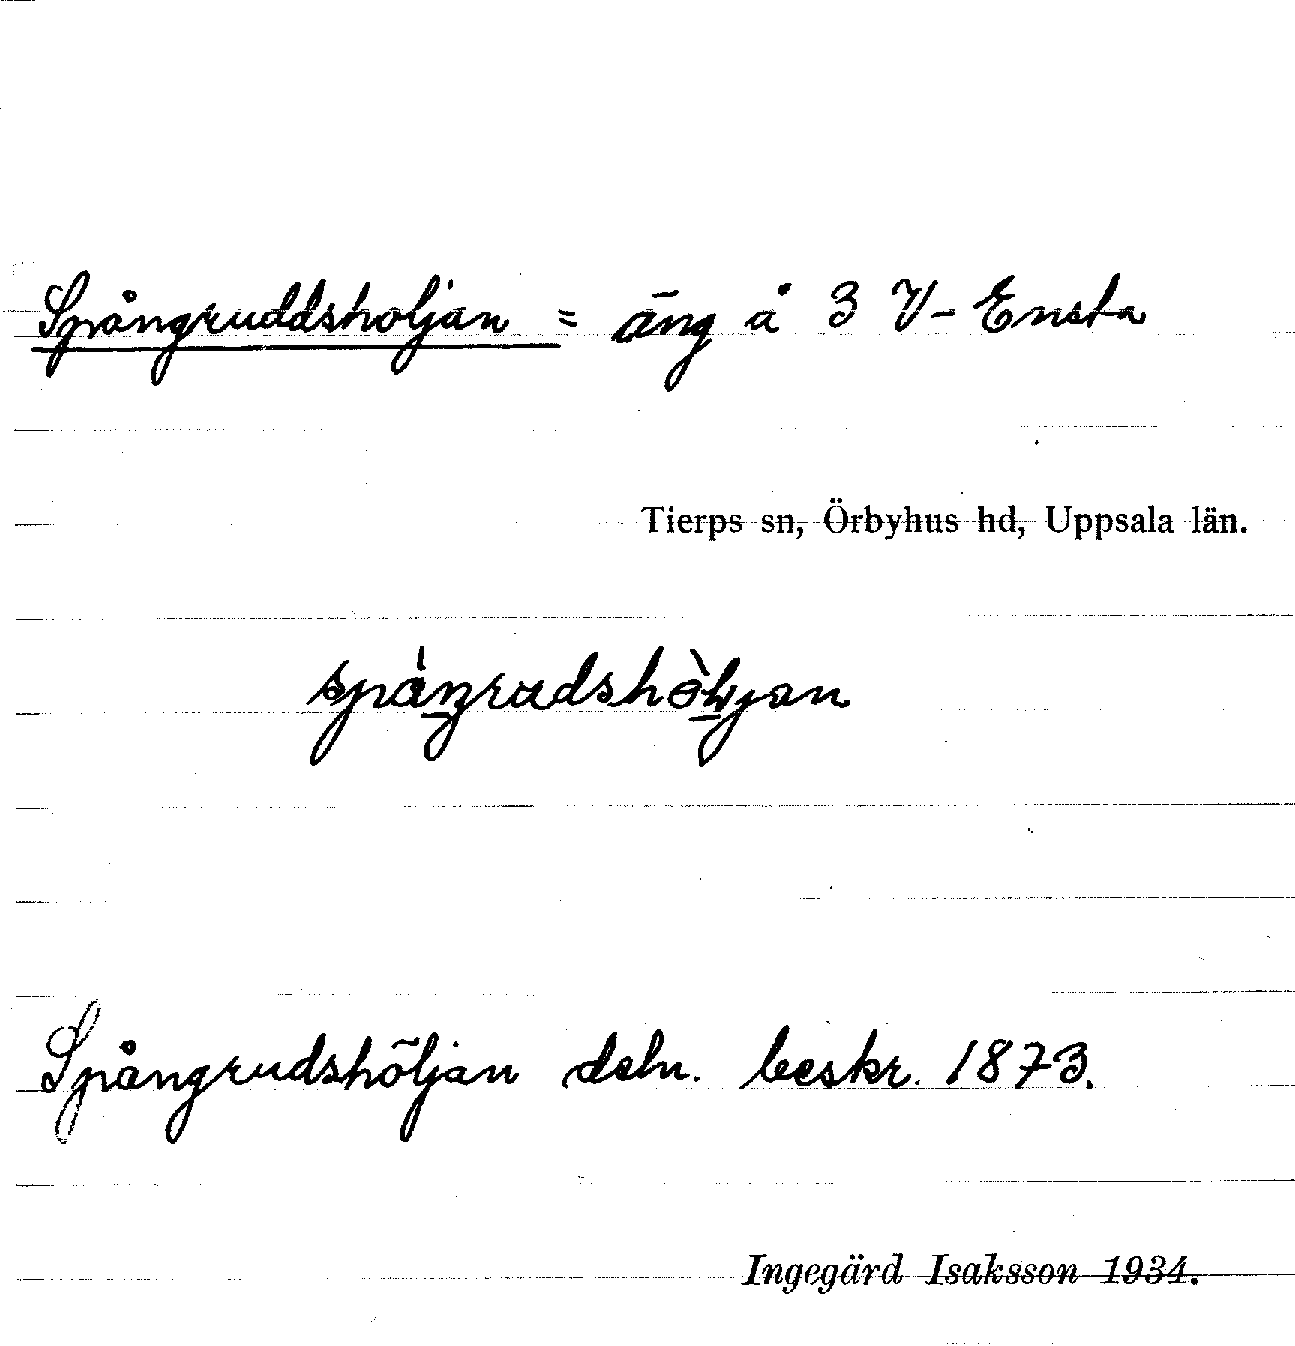 Spångruddsholjan = äng å 3 V-Ensta
Tierps sn, Örbyhus hd, Uppsala län.
Spångrudshöljan deln. beskr. 1873.
Ingegärd Isaksson 1934.